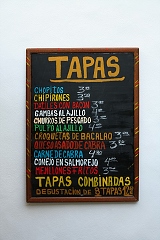 TAPAS
CHOPITOS 3'50
CHIPIRONES 3'50
DATILES CON BACON 3'
GAMBAS AL AJILLO 4'
CHURROS DE PESCADO 4'
PULPO AL AJILLO 4'
CROQUETAS DE BACALAO 3'
QUESO ASADO DE CABRA 3'
CARNE DE CABRA 4'
CONEJO EN SALMOREJO 4'
MEJILLONES FRITOS 3'
TAPAS COMBINADAS
DEGUSTACION DE TAPAS